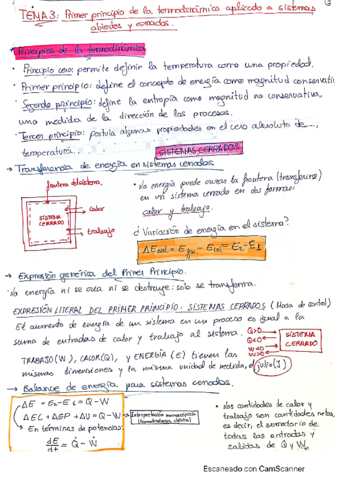 TEMA 3: Primer principio de la termodinámica aplicado a sistemas
abiertos y cerrados.
Principios de la termodinámica
• Principio cero: permite definir la temperatura como una propiedad.
• Primer principio: define el concepto de energía como magnitud conservativa
• Segundo principio: define la entropía como magnitud no conservativa,
una medida de la dirección de los procesos.
• Tercer principio: postula algunas propiedades en el cero absoluto de
temperatura.
SISTEMAS CERRADOS
→ Transferencia de energía en sistemas cerrados
frontera del sistema.
SISTEMA
CERRADO
calor
trabajo
• La energía puede cruzar la frontera (transferirse)
en un sistema cerrado en dos formas:
calor y trabajo.
¿Variación de energía en el sistema?
→ Expresión genérica del Primer Principio.
La energía ni se crea ni se destruye: solo se transforma.
EXPRESIÓN LITERAL DEL PRIMER PRINCIPIO: SISTEMAS CERRADOS (Masa de control)
El aumento de energía de un sistema en un proceso es igual a la
suma de entradas de calor y trabajo al sistema.
Q>0
Q<0
W<0
W>0
SISTEMA
CERRADO
TRABAJO (W), CALOR (Q), y ENERGÍA (E) tienen las
mismas dimensiones y la misma unidad de medida, el julio (J)
→ Balance de energía para sistemas cerrados.
ΔE = E2 - E1 = Q - W
ΔEC + ΔEP + ΔU = Q - W
→ En términos de potencias:
dE/dt = Q̇ - Ẇ
Interpretación macroscópica
(termodinámica clásica)
• Las cantidades de calor y
trabajo son cantidades netas,
es decir, el sumatorio de
todas las entradas y
salidas de Q y W.
Escaneado con CamScanner